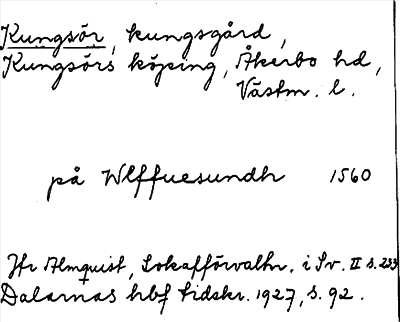 Kungsör, kungsgård,
Kungsörs köping, Åkerbo hd,
Västm. l.
på Wlffuesundh 1560
Jfr Almquist, Lokalförvaltn. i Sv. II s. 233
Dalarnas hbf tidskr. 1927, s. 92.